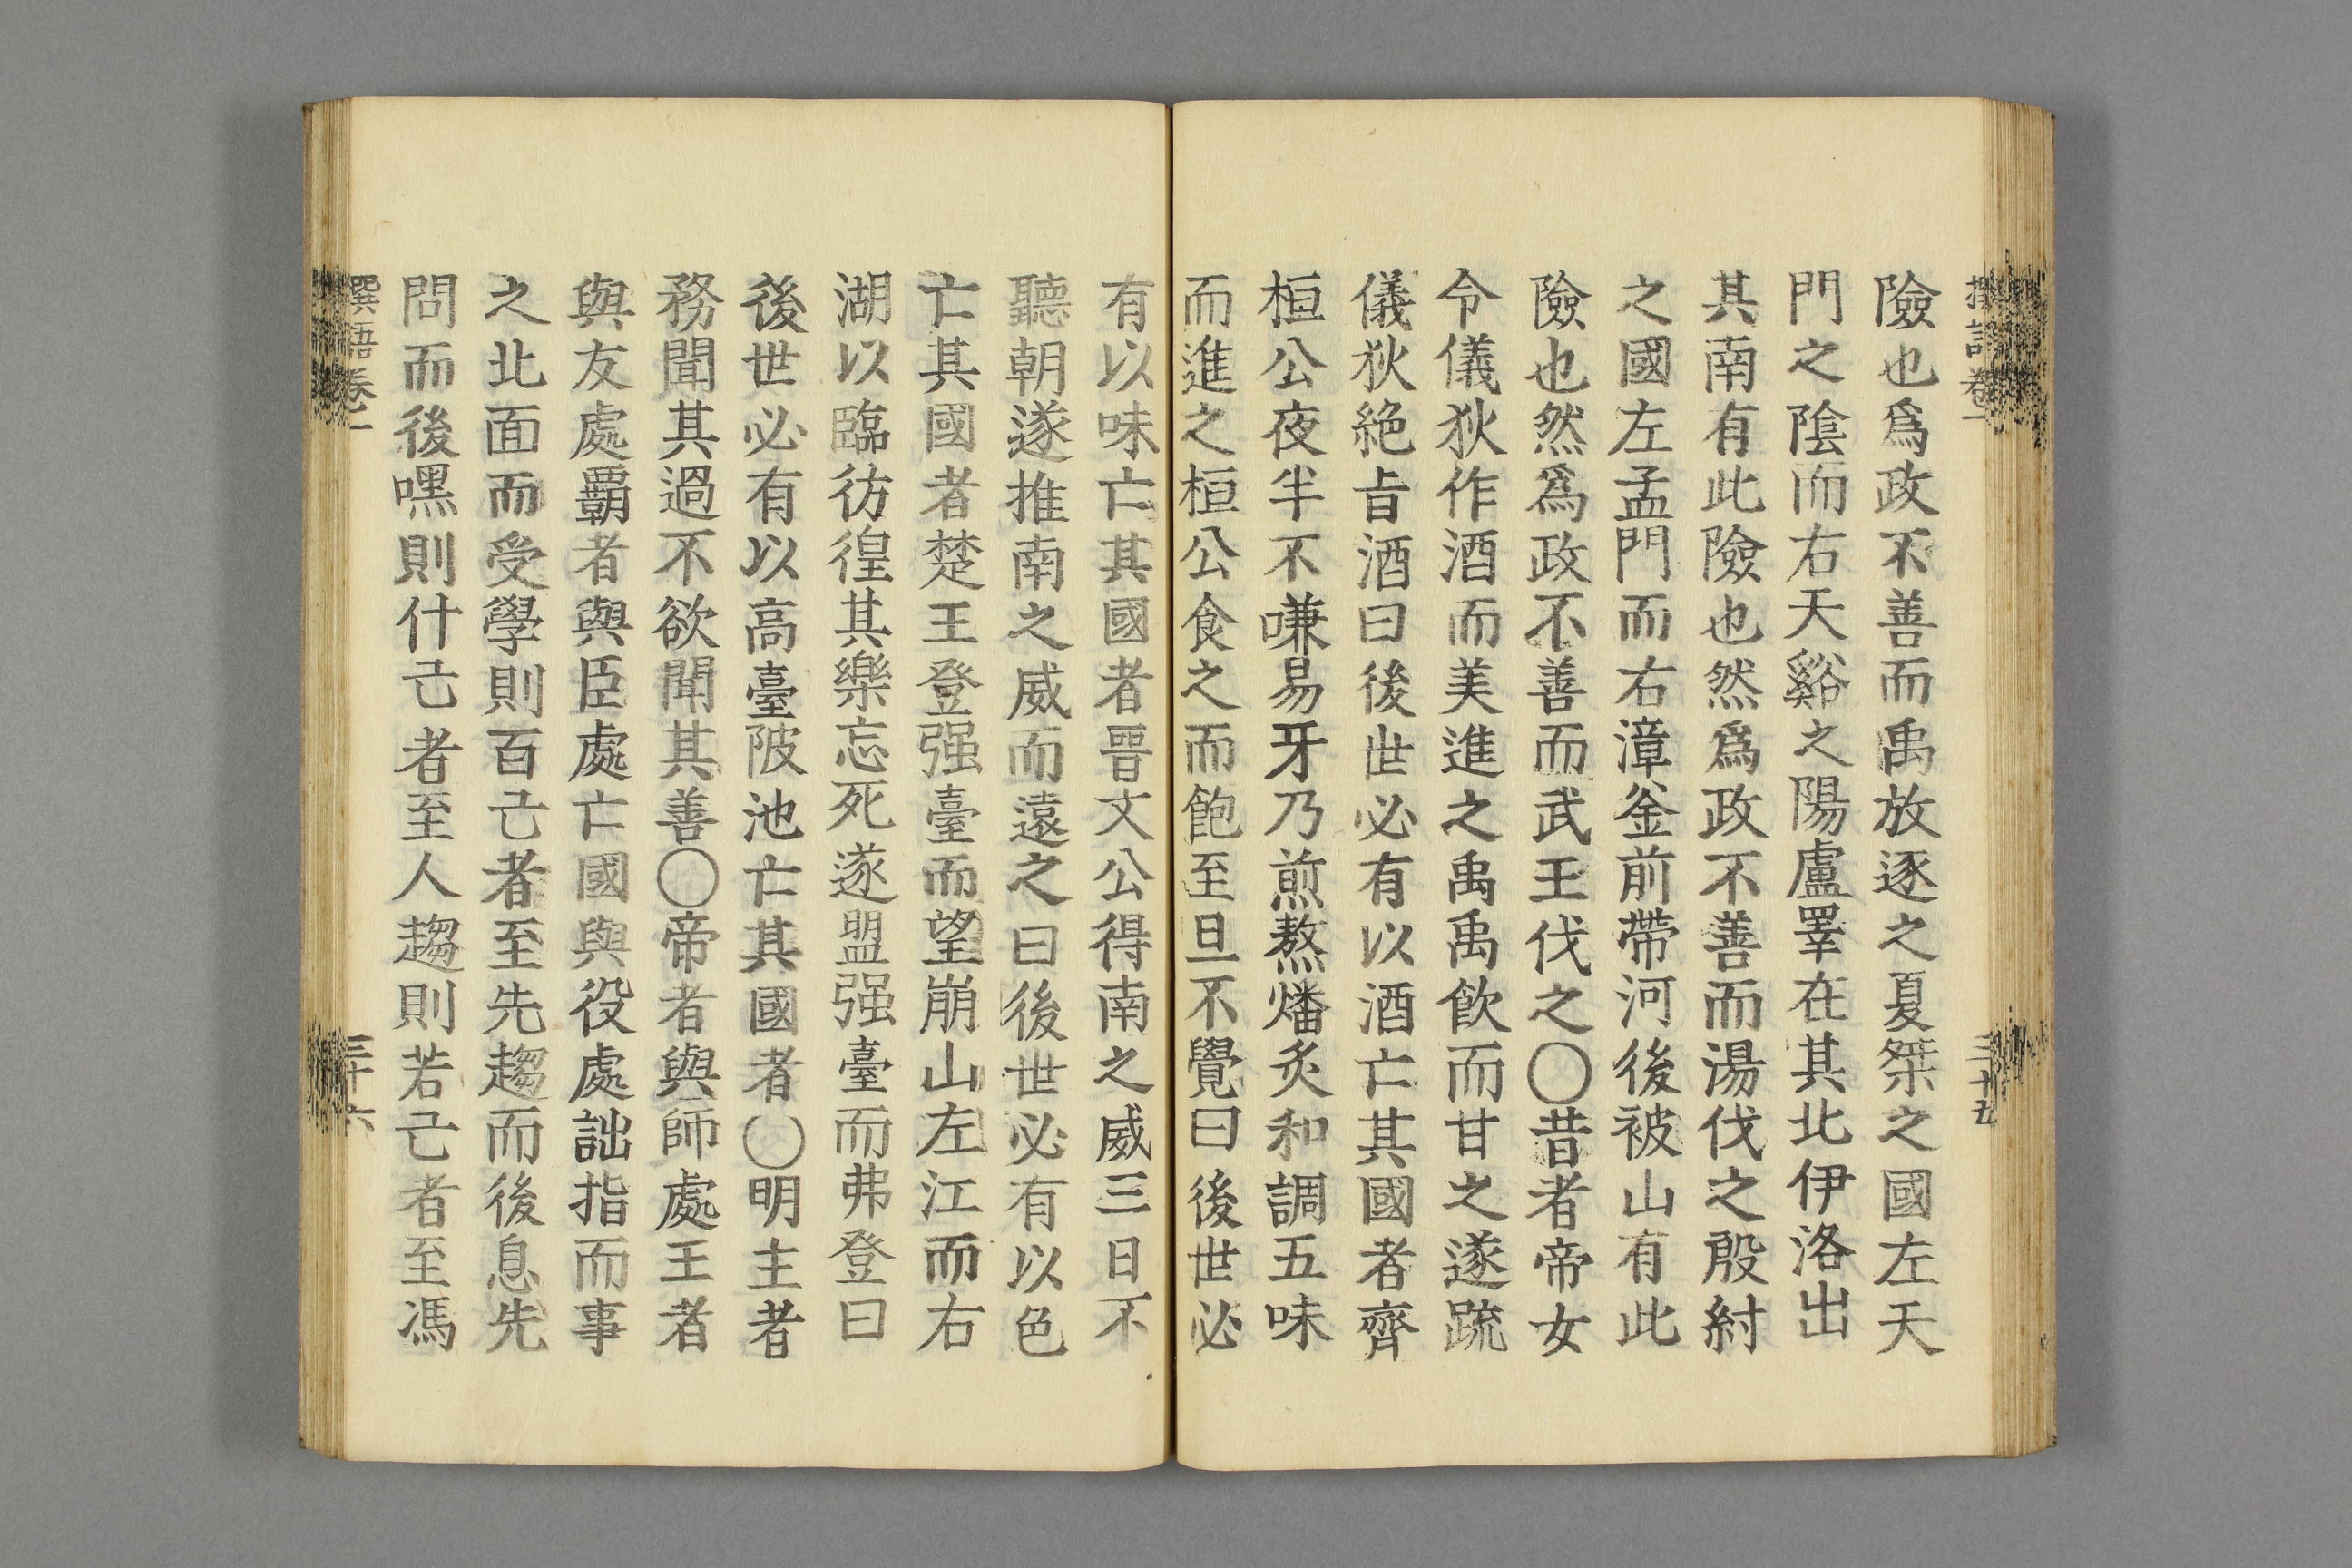 險也爲政不善而禹放逐之夏桀之國左天
門之陰而右天谿之陽盧睪在其北伊洛出
其南有此險也然爲政不善而湯伐之殷紂
之國左孟門而右漳釜前帶河後被山有此
險也然爲政不善而武王伐之〇昔者帝女
令儀狄作酒而美進之禹禹飲而甘之遂疏
儀狄絶旨酒曰後世必有以酒亡其國者齊
桓公夜半不嗛易牙乃煎熬燔炙和調五味
而進之桓公食之而飽至旦不覺曰後世必
三十五
有以味亡其國者晉文公得南之威三日不
聽朝遂推南之威而遠之曰後世必有以色
亡其國者楚王登强臺而望崩山左江而右
湖以臨彷徨其樂忘死遂盟强臺而弗登曰
後世必有以高臺陂池亡其國者〇明主者
務聞其過不欲聞其善〇帝者與師處王者
與友處覇者與臣處亡國與役處詘指而事
之北面而受學則百己者至先趨而後息先
問而後嘿則什己者至人趨則若己者至馮
語卷一
三十六